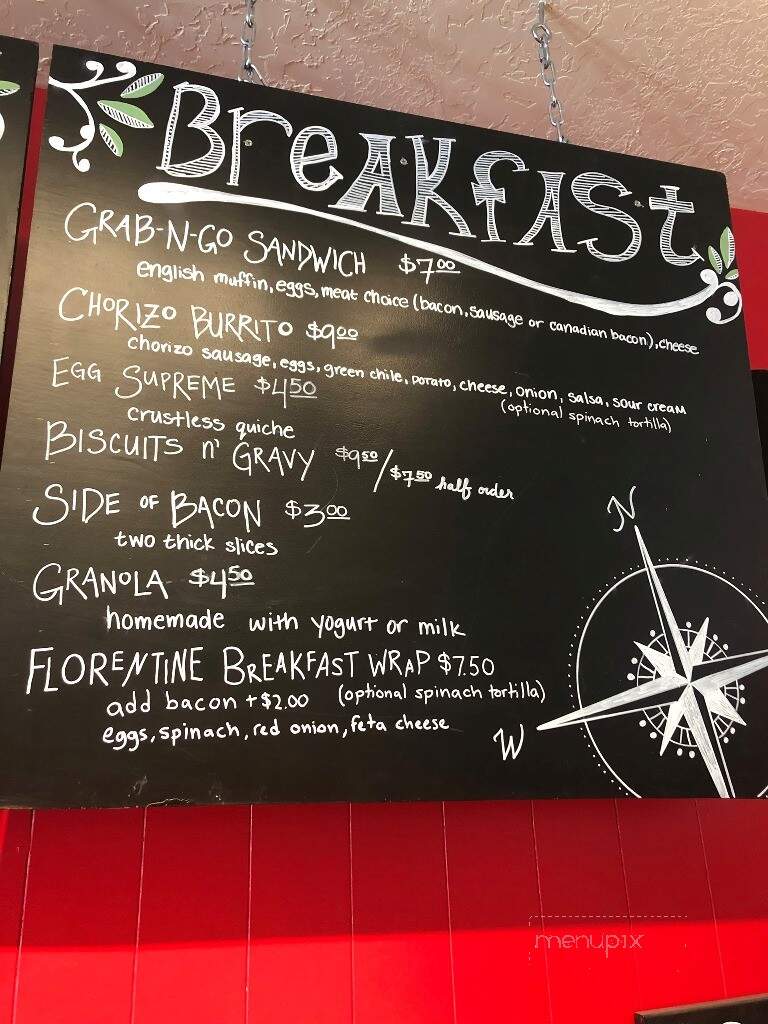 BreAKfASt
GRAB-N-GO SANDWICH $700
english muffin, eggs, meat choice (bacon, sausage or canadian bacon), cheese
CHORIZO BURRITO $900
chorizo sausage, eggs, green chile, potato, cheese, onion, salsa, sour cream
(optional spinach tortilla)
EGG SUPREME $450
crustless quiche
BISCUITS n' GRAVY $950/$750 half order
SIDE OF BACON $300
two thick slices
GRANOLA $450
homemade with yogurt or milk
FLORENTINE BREAKFAST WRAP $7.50
add bacon +$2.00 (optional spinach tortilla)
eggs, spinach, red onion, feta cheese
N
W
menupix